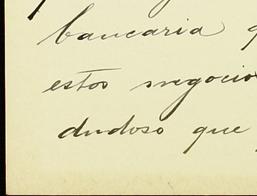 bancaria q
estos negocio
dudoso que